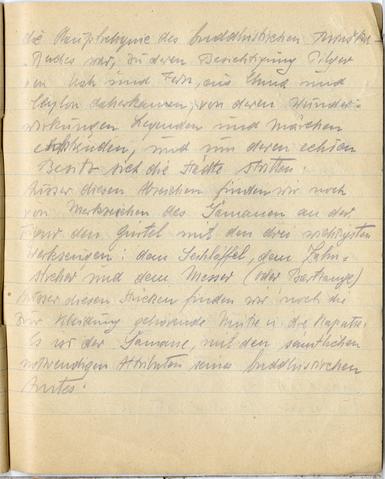 die Hauptreliquie des buddhistischen
Rades war, zu deren Besichtigung Pilger
von Nah und Fern, aus China und
Ceylon daherkamen, von deren Wunder-
wirkungen Legenden und Märchen
und um deren echten
Besitz sich die Städte stritten.
Ausser diesen Abzeichen finden wir noch
von Merkzeichen des Samanen an der
Figur den Gürtel mit den drei wichtigsten
Werkzeugen: dem Ohrlöffel, dem Zahn-
stocher und dem Messer (oder Bartzange)
Ausser diesen Stücken finden wir noch die
zur Kleidung gehörende Mütze u. die Kapuze.
Es ist der Samane, mit den sämtlichen
notwendigen Attributen seines buddhistischen
Amtes.